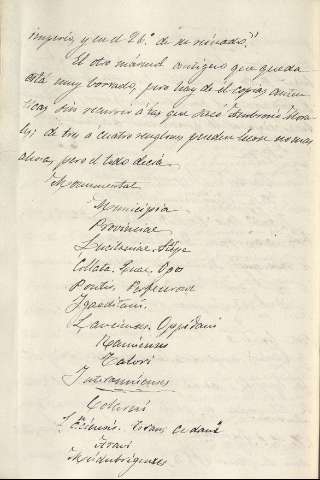 imperio, y en el 26.º de su reinado."
El otro marmol antiguo que queda
está muy borrado, pero hay de él copias autén-
ticas sin recurrir á las que sacó Ambrosio Mora-
les; de tres a cuatro renglones pueden leerse no mas
ahora, pero el todo decia
Municipia
Provinciae
Lusitaniae. Stipe
Collata. Quae. Opus
Pontis. Perfecerunt
Igaeditani.
Lancienses. Oppidani
Talori
Interamnienses
Colarni
Arani
Meidubrigenses